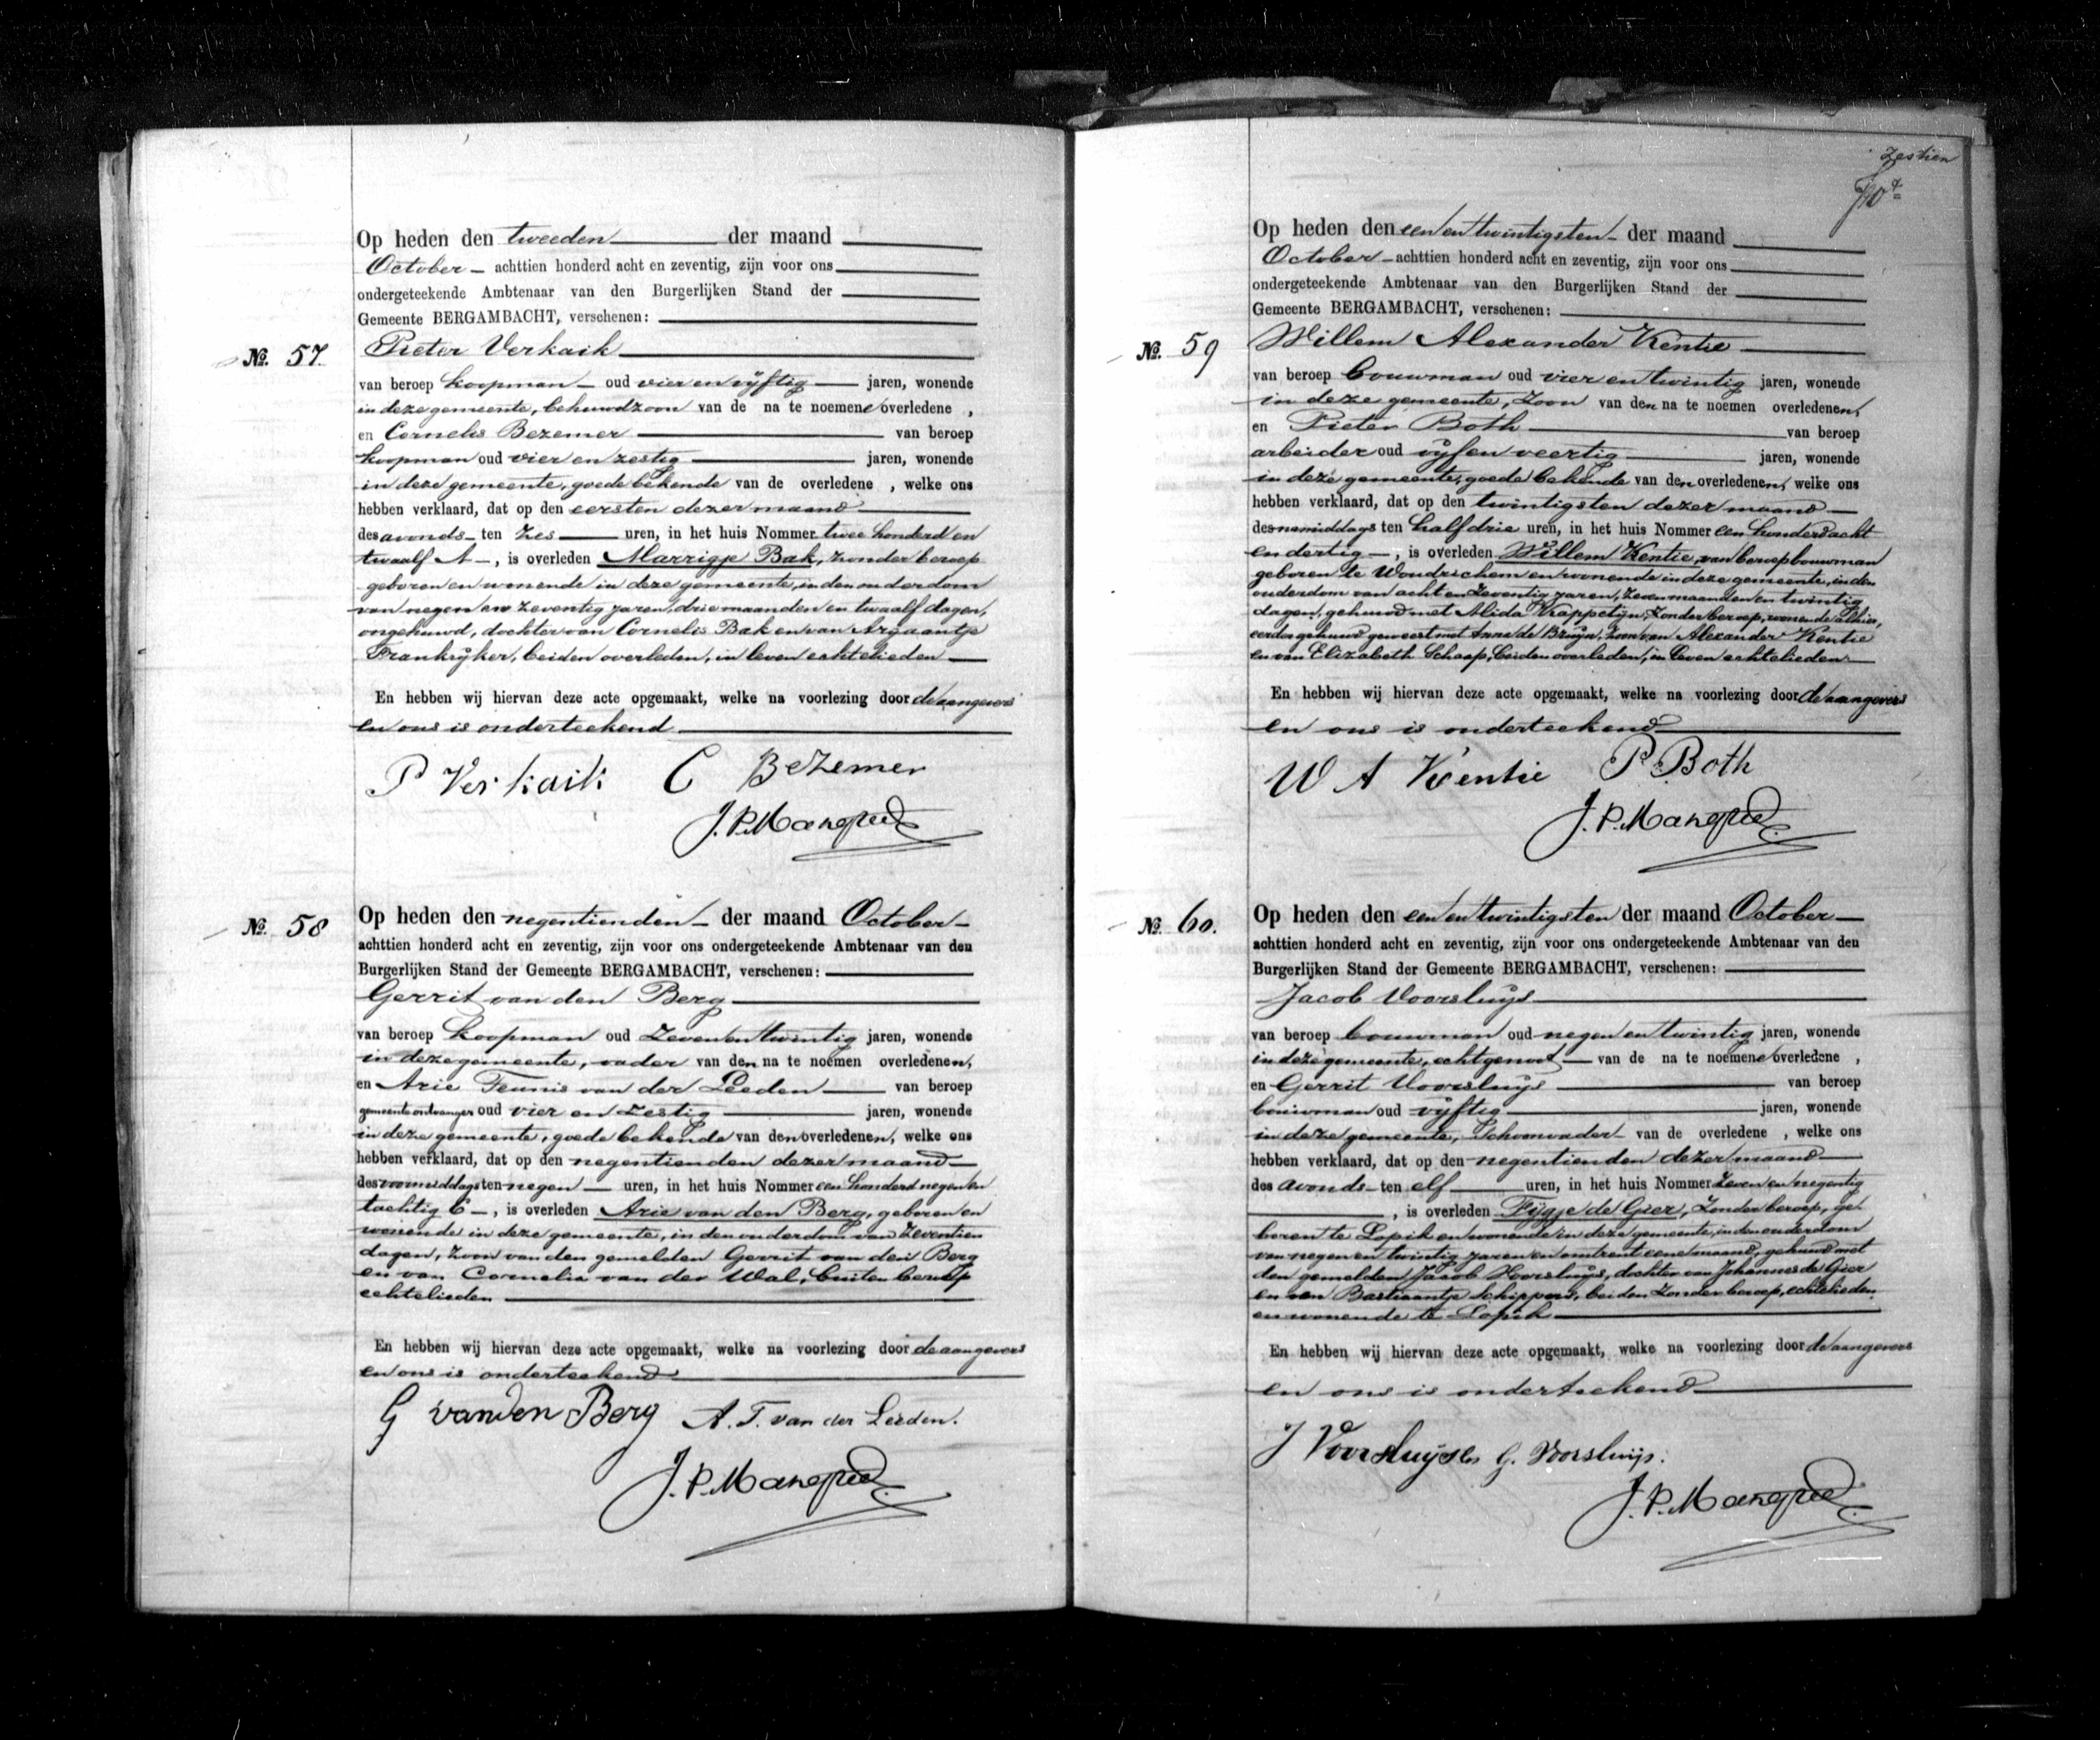 Op heden den tweeden der maand
October achttien honderd acht en zeventig, zijn voor ons
ondergeteekende Ambtenaar van den Burgerlijken Stand der
Gemeente BERGAMBACHT, verschenen:
No. 57. Pieter Verkaik
van beroep koopman oud vier en vijftig jaren, wonende
in deze gemeente, behuwdzoon van de na te noemene overledene,
en Cornelis Bezemer van beroep
koopman oud vier en zestig jaren, wonende
in deze gemeente, goede bekende van de overledene, welke ons
hebben verklaard, dat op den eersten dezer maand
des avonds ten zes uren, in het huis Nommer twee honderd en
twaalf A, is overleden Marrigje Bak, zonder beroep
geboren en wonende in deze gemeente, in den ouderdom
van negen en zeventig jaren, drie maanden en twaalf dagen,
ongehuwd, dochter van Cornelis Bak en van Arjaantje
Frankrijker, beiden overleden, in leven echtelieden
En hebben wij hiervan deze acte opgemaakt, welke na voorlezing door de aangevers
en ons is onderteekend
P Verkaik C Bezemer
No. 58 Op heden den negentienden der maand October
achttien honderd acht en zeventig, zijn voor ons ondergeteekende Ambtenaar van den
Burgerlijken Stand der Gemeente BERGAMBACHT, verschenen:
Gerrit van den Berg
van beroep koopman oud zeven en twintig jaren, wonende
in deze gemeente, vader van den na te noemen overledenen,
en Arie Teunis van der Leeden van beroep
gemeenteontvanger oud vier en zestig jaren, wonende
in deze gemeente, goede bekende van den overledenen, welke ons
hebben verklaard, dat op den negentienden dezer maand
des voormiddags ten negen uren, in het huis Nommer een honderd negen en
tachtig C, is overleden Arie van den Berg, geboren en
wonende in deze gemeente, in den ouderdom van zeventien
dagen, zoon van den gemelden Gerrit van den Berg
en van Cornelia van der Wal, buiten beroep
echtelieden
En hebben wij hiervan deze acte opgemaakt, welke na voorlezing door de aangevers
en ons is onderteekend
G van den Berg A. T. van der Leeden.
zestien
Op heden den een en twintigsten der maand
October achttien honderd acht en zeventig, zijn voor ons
ondergeteekende Ambtenaar van den Burgerlijken Stand der
Gemeente BERGAMBACHT, verschenen:
No. 59 Willem Alexander Kentie
van beroep bouwman oud vier en twintig jaren, wonende
in deze gemeente, zoon van den na te noemen overledenen,
en Pieter Both van beroep
arbeider oud vijf en veertig jaren, wonende
in deze gemeente, goede bekende van den overledenen, welke ons
hebben verklaard, dat op den twintigsten dezer maand
des namiddags ten half drie uren, in het huis Nommer een honderd acht
en dertig, is overleden Willem Kentie, van beroep bouwman
geboren te Woudrichem en wonende in deze gemeente, in den
ouderdom van acht en zeventig jaren, zeven maanden en twintig
dagen, gehuwd met Alida Krappetijn, zonder beroep, wonende alhier,
eerder gehuwd geweest met Anna de Bruyn, zoon van Alexander Kentie
en van Elizabeth Schaap, beiden overleden, in leven echtelieden
En hebben wij hiervan deze acte opgemaakt, welke na voorlezing door de aangevers
en ons is onderteekend
W A Kentie P. Both
No. 60. Op heden den een en twintigsten der maand October
achttien honderd acht en zeventig, zijn voor ons ondergeteekende Ambtenaar van den
Burgerlijken Stand der Gemeente BERGAMBACHT, verschenen:
Jacob Voorsluijs
van beroep bouwman oud negen en twintig jaren, wonende
in deze gemeente, echtgenoot van de na te noemene overledene,
en Gerrit Voorsluijs van beroep
bouwman oud vijftig jaren, wonende
in deze gemeente, schoonvader van de overledene, welke ons
hebben verklaard, dat op den negentienden dezer maand
des avonds ten elf uren, in het huis Nommer zeven en negentig
, is overleden Fijgje de Gier, zonder beroep, ge-
boren te Lopik en wonende in deze gemeente, in den ouderdom
van negen en twintig jaren en omtrent eene maand, gehuwd met
den gemelden Jacob Voorsluijs, dochter van Johannes de Gier
en van Bastiaantje Schippers, beiden zonder beroep, echtelieden
en wonende te Lopik
En hebben wij hiervan deze acte opgemaakt, welke na voorlezing door de aangevers
en ons is onderteekend
J Voorsluijs G. Voorsluijs.